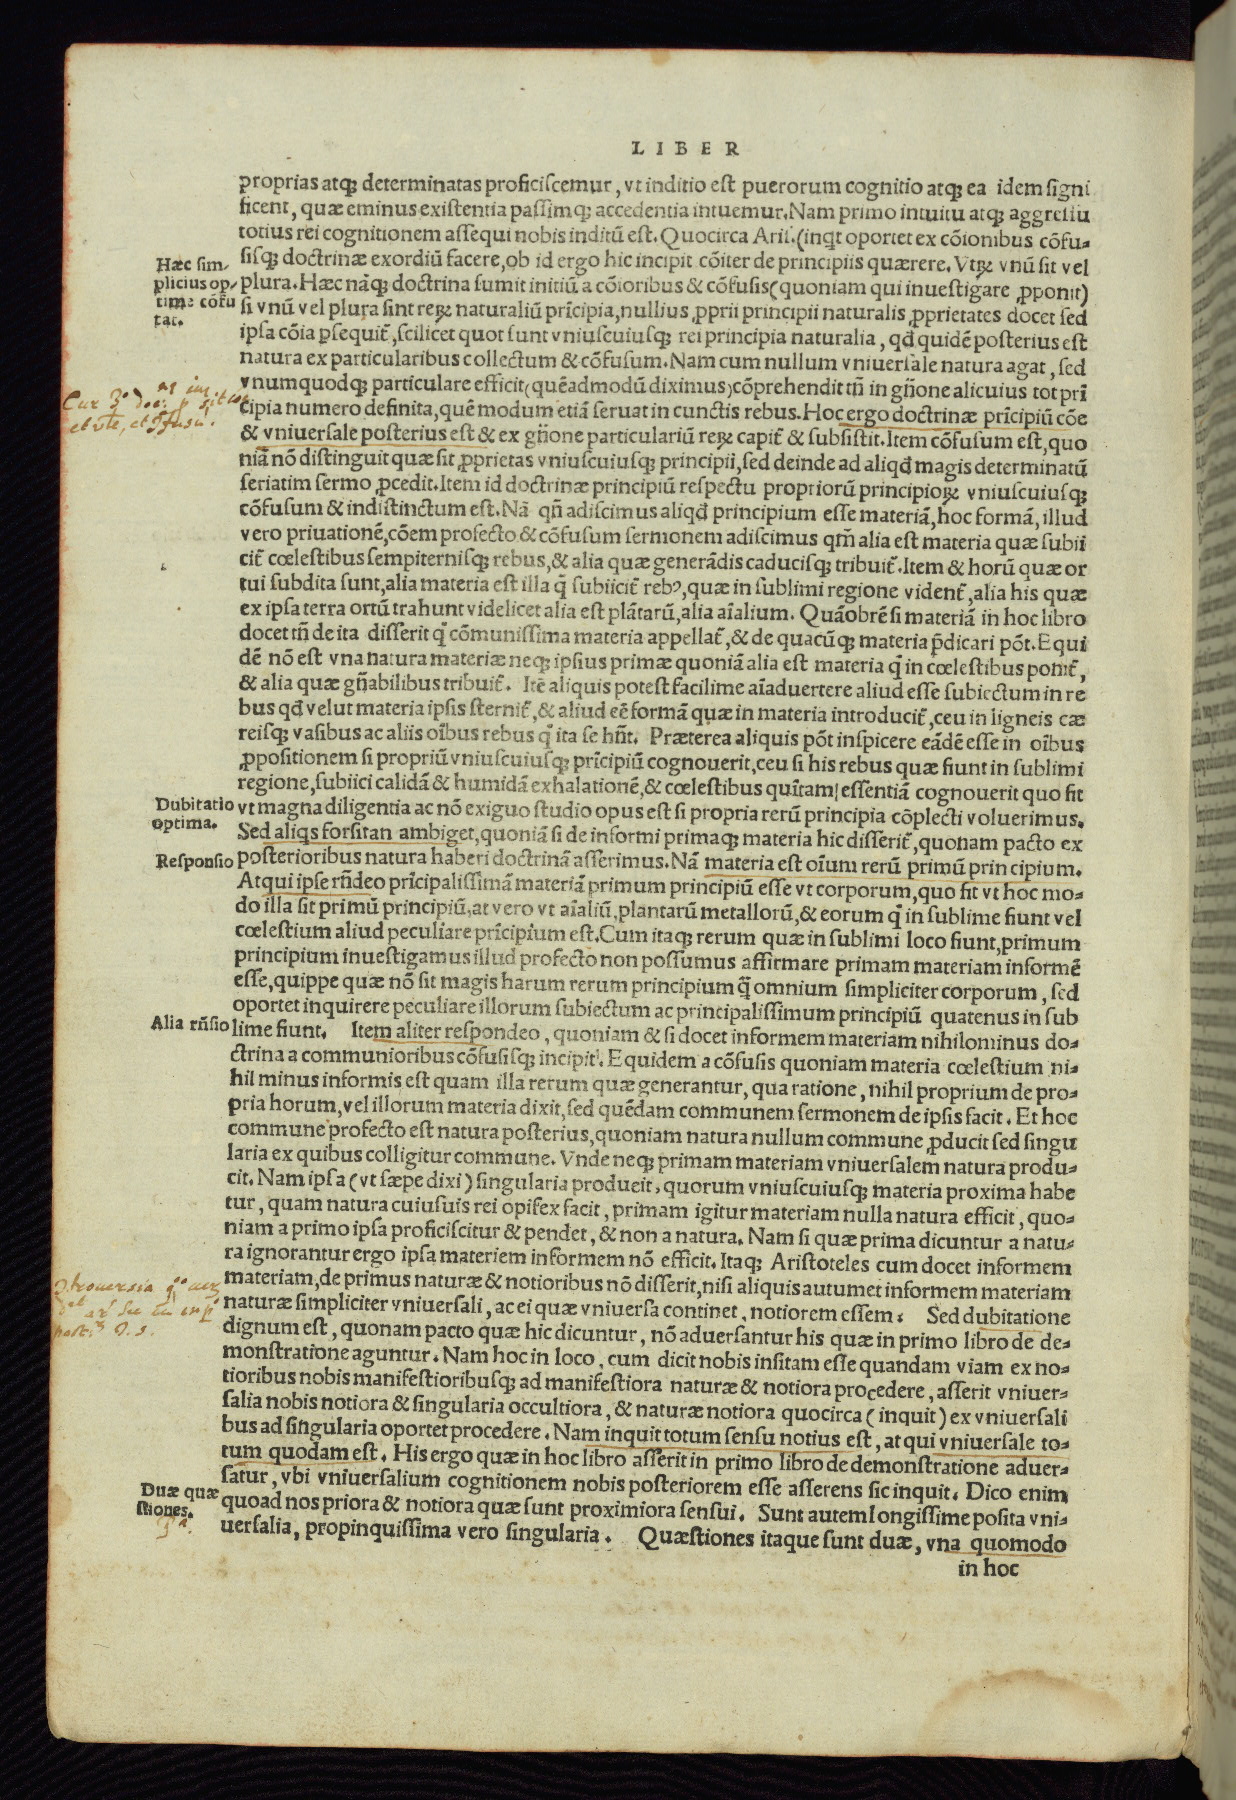 LIBER
proprias atqꝫ determinatas proficiscemur, vt inditio est puerorum cognitio atqꝫ ea idem signi
ficent, quæ eminus existentia passimqꝫ accedentia intuemur. Nam primo intuitu atqꝫ aggressu
totius rei cognitionem assequi nobis inditũ est. Quocirca Arist. (inqt oportet ex cõionibus cõfu-
sisqꝫ doctrinæ exordiũ facere, ob id ergo hic incipit cõiter de principiis quærere. Vtrꝫ vnũ sit vel
Hæc sim-
plicius op-
time cõfu
tat.
plura. Hæc nãqꝫ doctrina sumit initiũ a cõioribus & cõfusis (quoniam qui inuestigare ꝓponit)
si vnũ vel plura sint reꝝ naturaliũ prĩcipia, nullius ꝓprii principii naturalis ꝓprietates docet sed
ipsa cõia ꝑsequit̃, scilicet quot sunt vniuscuiusqꝫ rei principia naturalia, qđ quidẽ posterius est
natura ex particularibus collectum & cõfusum. Nam cum nullum vniuersale natura agat, sed
vnumquodqꝫ particulare efficit (quẽadmodũ diximus) cõprehendit tñ in gñone alicuius tot prĩ
cipia numero definita, quẽ modum etiã seruat in cunctis rebus. Hoc ergo doctrinæ prĩcipiũ cõe
& vniuersale posterius est & ex gñone particulariũ reꝝ capit̃ & subsistit. Item cõfusum est, quo
niã nõ distinguit quæ sit ꝓprietas vniuscuiusqꝫ principii, sed deinde ad aliqđ magis determinatũ
seriatim sermo ꝓcedit. Item id doctrinæ principiũ respectu propriorũ principioꝝ vniuscuiusqꝫ
cõfusum & indistinctum est. Nã qñ adiscimus aliqđ principium esse materiã, hoc formã, illud
vero priuationẽ, cõem profecto & cõfusum sermonem adiscimus qm̃ alia est materia quæ subii
cit̃ cœlestibus sempiternisqꝫ rebus, & alia quæ generãdis caducisqꝫ tribuit̃. Item & horũ quæ or
tui subdita sunt, alia materia est illa q̃ subiicit̃ rebꝰ, quæ in sublimi regione vident̃, alia his quæ
ex ipsa terra ortũ trahunt videlicet alia est plãtarũ, alia aĩalium. Quãobrẽ si materiã in hoc libro
docet tñ de ita disserit q̃ cõmunissima materia appellat̃, & de quacũqꝫ materia p̃dicari põt. Equi
dẽ nõ est vna natura materiæ neqꝫ ipsius primæ quoniã alia est materia q̃ in cœlestibus ponit̃,
& alia quæ gñabilibus tribuit̃. Itẽ aliquis potest facilime aĩaduertere aliud esse subiectum in re
bus qđ velut materia ipsis sternit̃, & aliud eẽ formã quæ in materia introducit̃, ceu in ligneis cæ
reisqꝫ vasibus ac aliis oĩbus rebus q̃ ita se hñt. Præterea aliquis põt inspicere eãdẽ esse in oĩbus
ꝓpositionem si propriũ vniuscuiusqꝫ prĩcipiũ cognouerit, ceu si his rebus quæ fiunt in sublimi
regione, subiici calidã & humidã exhalationẽ, & cœlestibus quĩtam essentiã cognouerit quo fit
Dubitatio
optima.
vt magna diligentia ac nõ exiguo studio opus est si propria rerũ principia cõplecti voluerimus.
Sed aliqs forsitan ambiget, quoniã si de informi primaqꝫ materia hic disserit̃, quonam pacto ex
Responsio
posterioribus natura haberi doctrinã asserimus. Nã materia est oĩum rerũ primũ principium.
Atqui ipse rñdeo prĩcipalissimã materiã primum principiũ esse vt corporum, quo fit vt hoc mo-
do illa sit primũ principiũ, at vero vt aĩaliũ, plantarũ metallorũ, & eorum q̃ in sublime fiunt vel
cœlestium aliud peculiare prĩcipium est. Cum itaqꝫ rerum quæ in sublimi loco fiunt, primum
principium inuestigamus illud profecto non possumus affirmare primam materiam informẽ
esse, quippe quæ nõ sit magis harum rerum principium q̃ omnium simpliciter corporum, sed
oportet inquirere peculiare illorum subiectum ac principalissimum principiũ quatenus in sub
Alia rñsio
lime fiunt. Item aliter respondeo, quoniam & si docet informem materiam nihilominus do-
ctrina a communioribus cõfusisqꝫ incipit̃. Equidem a cõfusis quoniam materia cœlestium ni-
hil minus informis est quam illa rerum quæ generantur, qua ratione, nihil proprium de pro-
pria horum, vel illorum materia dixit, sed quẽdam communem sermonem de ipsis facit. Et hoc
commune profecto est natura posterius, quoniam natura nullum commune ꝓducit sed singu
laria ex quibus colligitur commune. Vnde neqꝫ primam materiam vniuersalem natura produ-
cit. Nam ipsa (vt sæpe dixi) singularia producit, quorum vniuscuiusqꝫ materia proxima habe
tur, quam natura cuiusuis rei opifex facit, primam igitur materiam nulla natura efficit, quo-
niam a primo ipsa proficiscitur & pendet, & non a natura. Nam si quæ prima dicuntur a natu-
ra ignorantur ergo ipsa materiem informem nõ efficit. Itaqꝫ Aristoteles cum docet informem
materiam, de primus naturæ & notioribus nõ disserit, nisi aliquis autumet informem materiam
naturæ simpliciter vniuersali, ac ei quæ vniuersa continet, notiorem essem. Sed dubitatione
dignum est, quonam pacto quæ hic dicuntur, nõ aduersantur his quæ in primo libro de de-
monstratione aguntur. Nam hoc in loco, cum dicit nobis insitam esse quandam viam ex no-
tioribus nobis manifestioribusqꝫ ad manifestiora naturæ & notiora procedere, asserit vniuer-
salia nobis notiora & singularia occultiora, & naturæ notiora quocirca (inquit) ex vniuersali
bus ad singularia oportet procedere. Nam inquit totum sensu notius est, at qui vniuersale to-
tum quodam est. His ergo quæ in hoc libro asserit in primo libro de demonstratione aduer-
satur, vbi vniuersalium cognitionem nobis posteriorem esse asserens sic inquit. Dico enim
Duæ quæ
stiones.
quoad nos priora & notiora quæ sunt proximiora sensui. Sunt autem longissime posita vni-
uersalia, propinquissima vero singularia. Quæstiones itaque sunt duæ, vna quomodo
in hoc